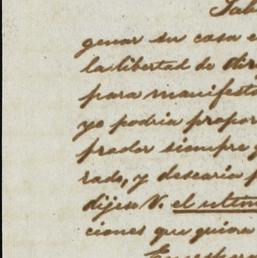 Sab
genar su casa e
la libertad de dir
para manifesta
yo podria propor
prador siempre q
rado, y desearia p
dijese V. el ultim
ciones que quiera